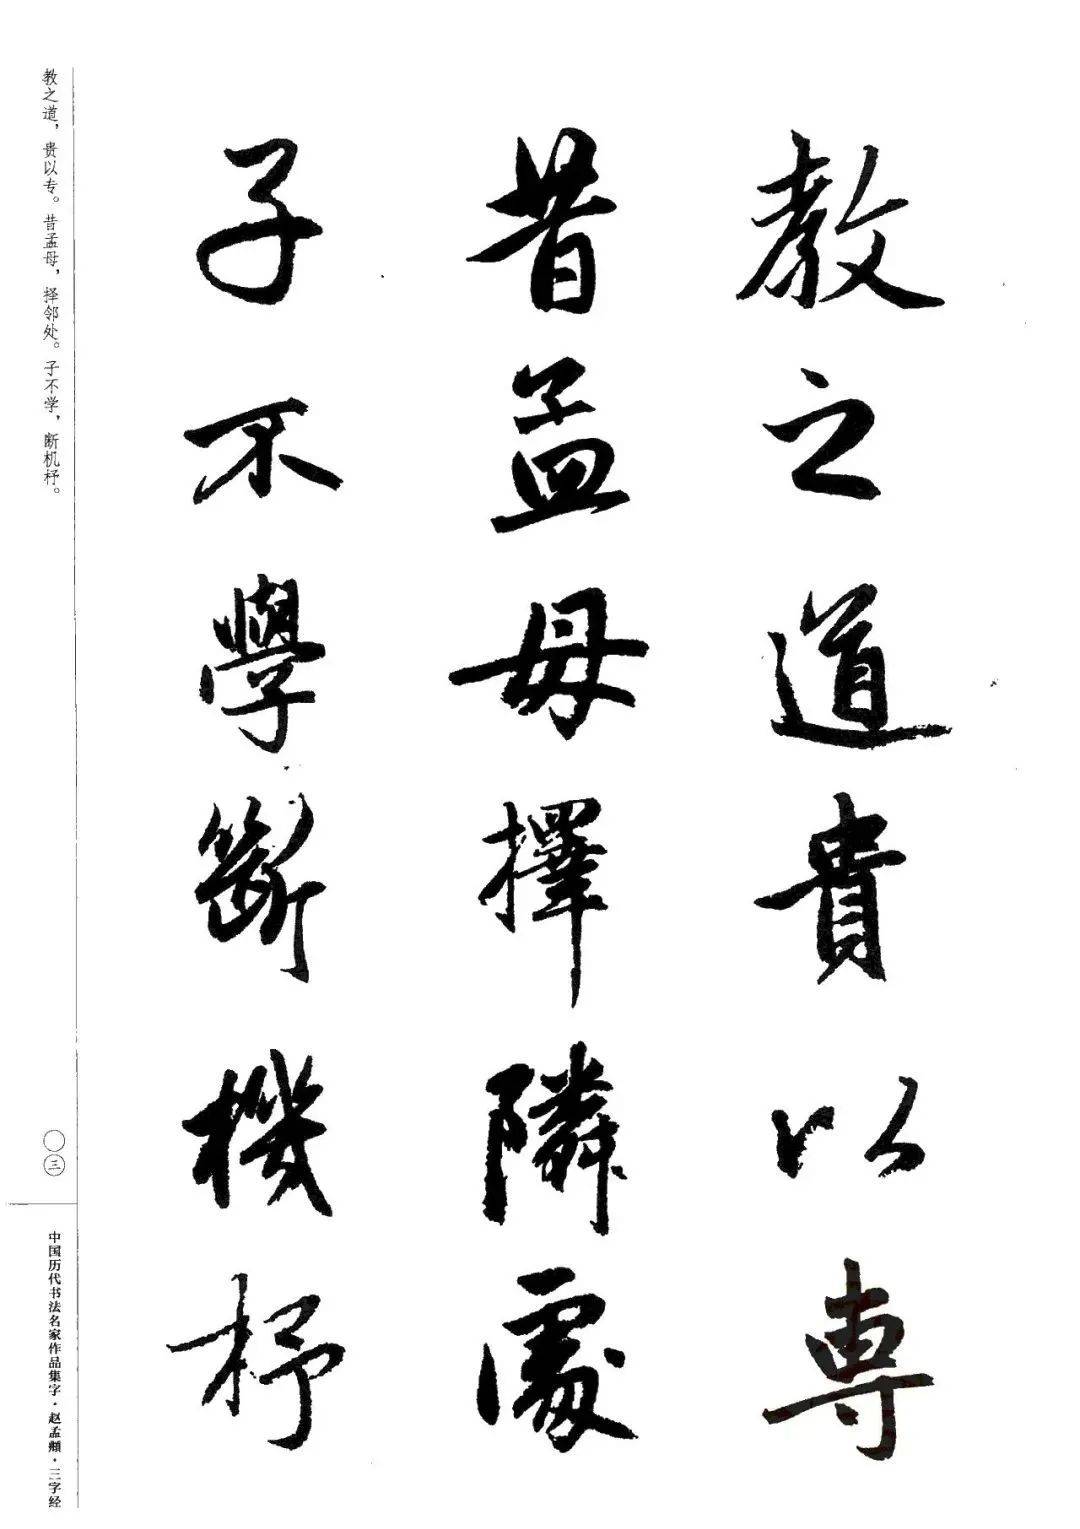 教之道貴以専
昔孟母擇隣處
子不學斷機杼
教之道，贵以专。昔孟母，择邻处。子不学，断机杼。
〇三
中国历代书法名家作品集字·赵孟頫·三字经